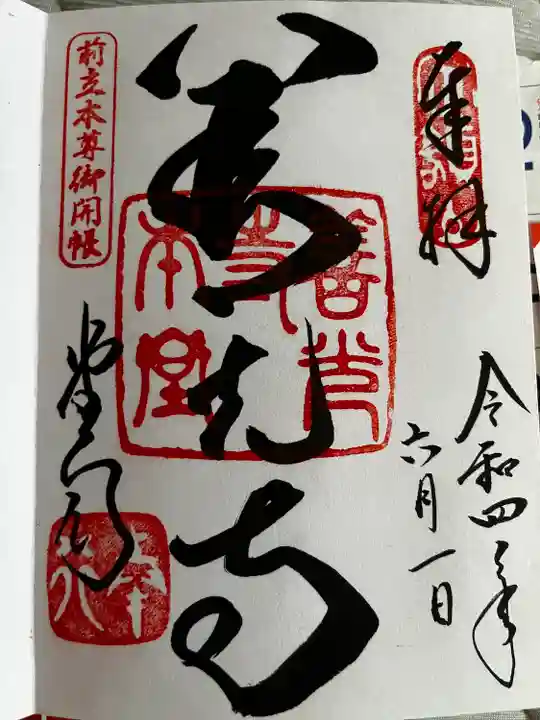 奉拝
令和四年
六月一日
善光寺
善光寺本堂
前立本尊御開帳
堂司